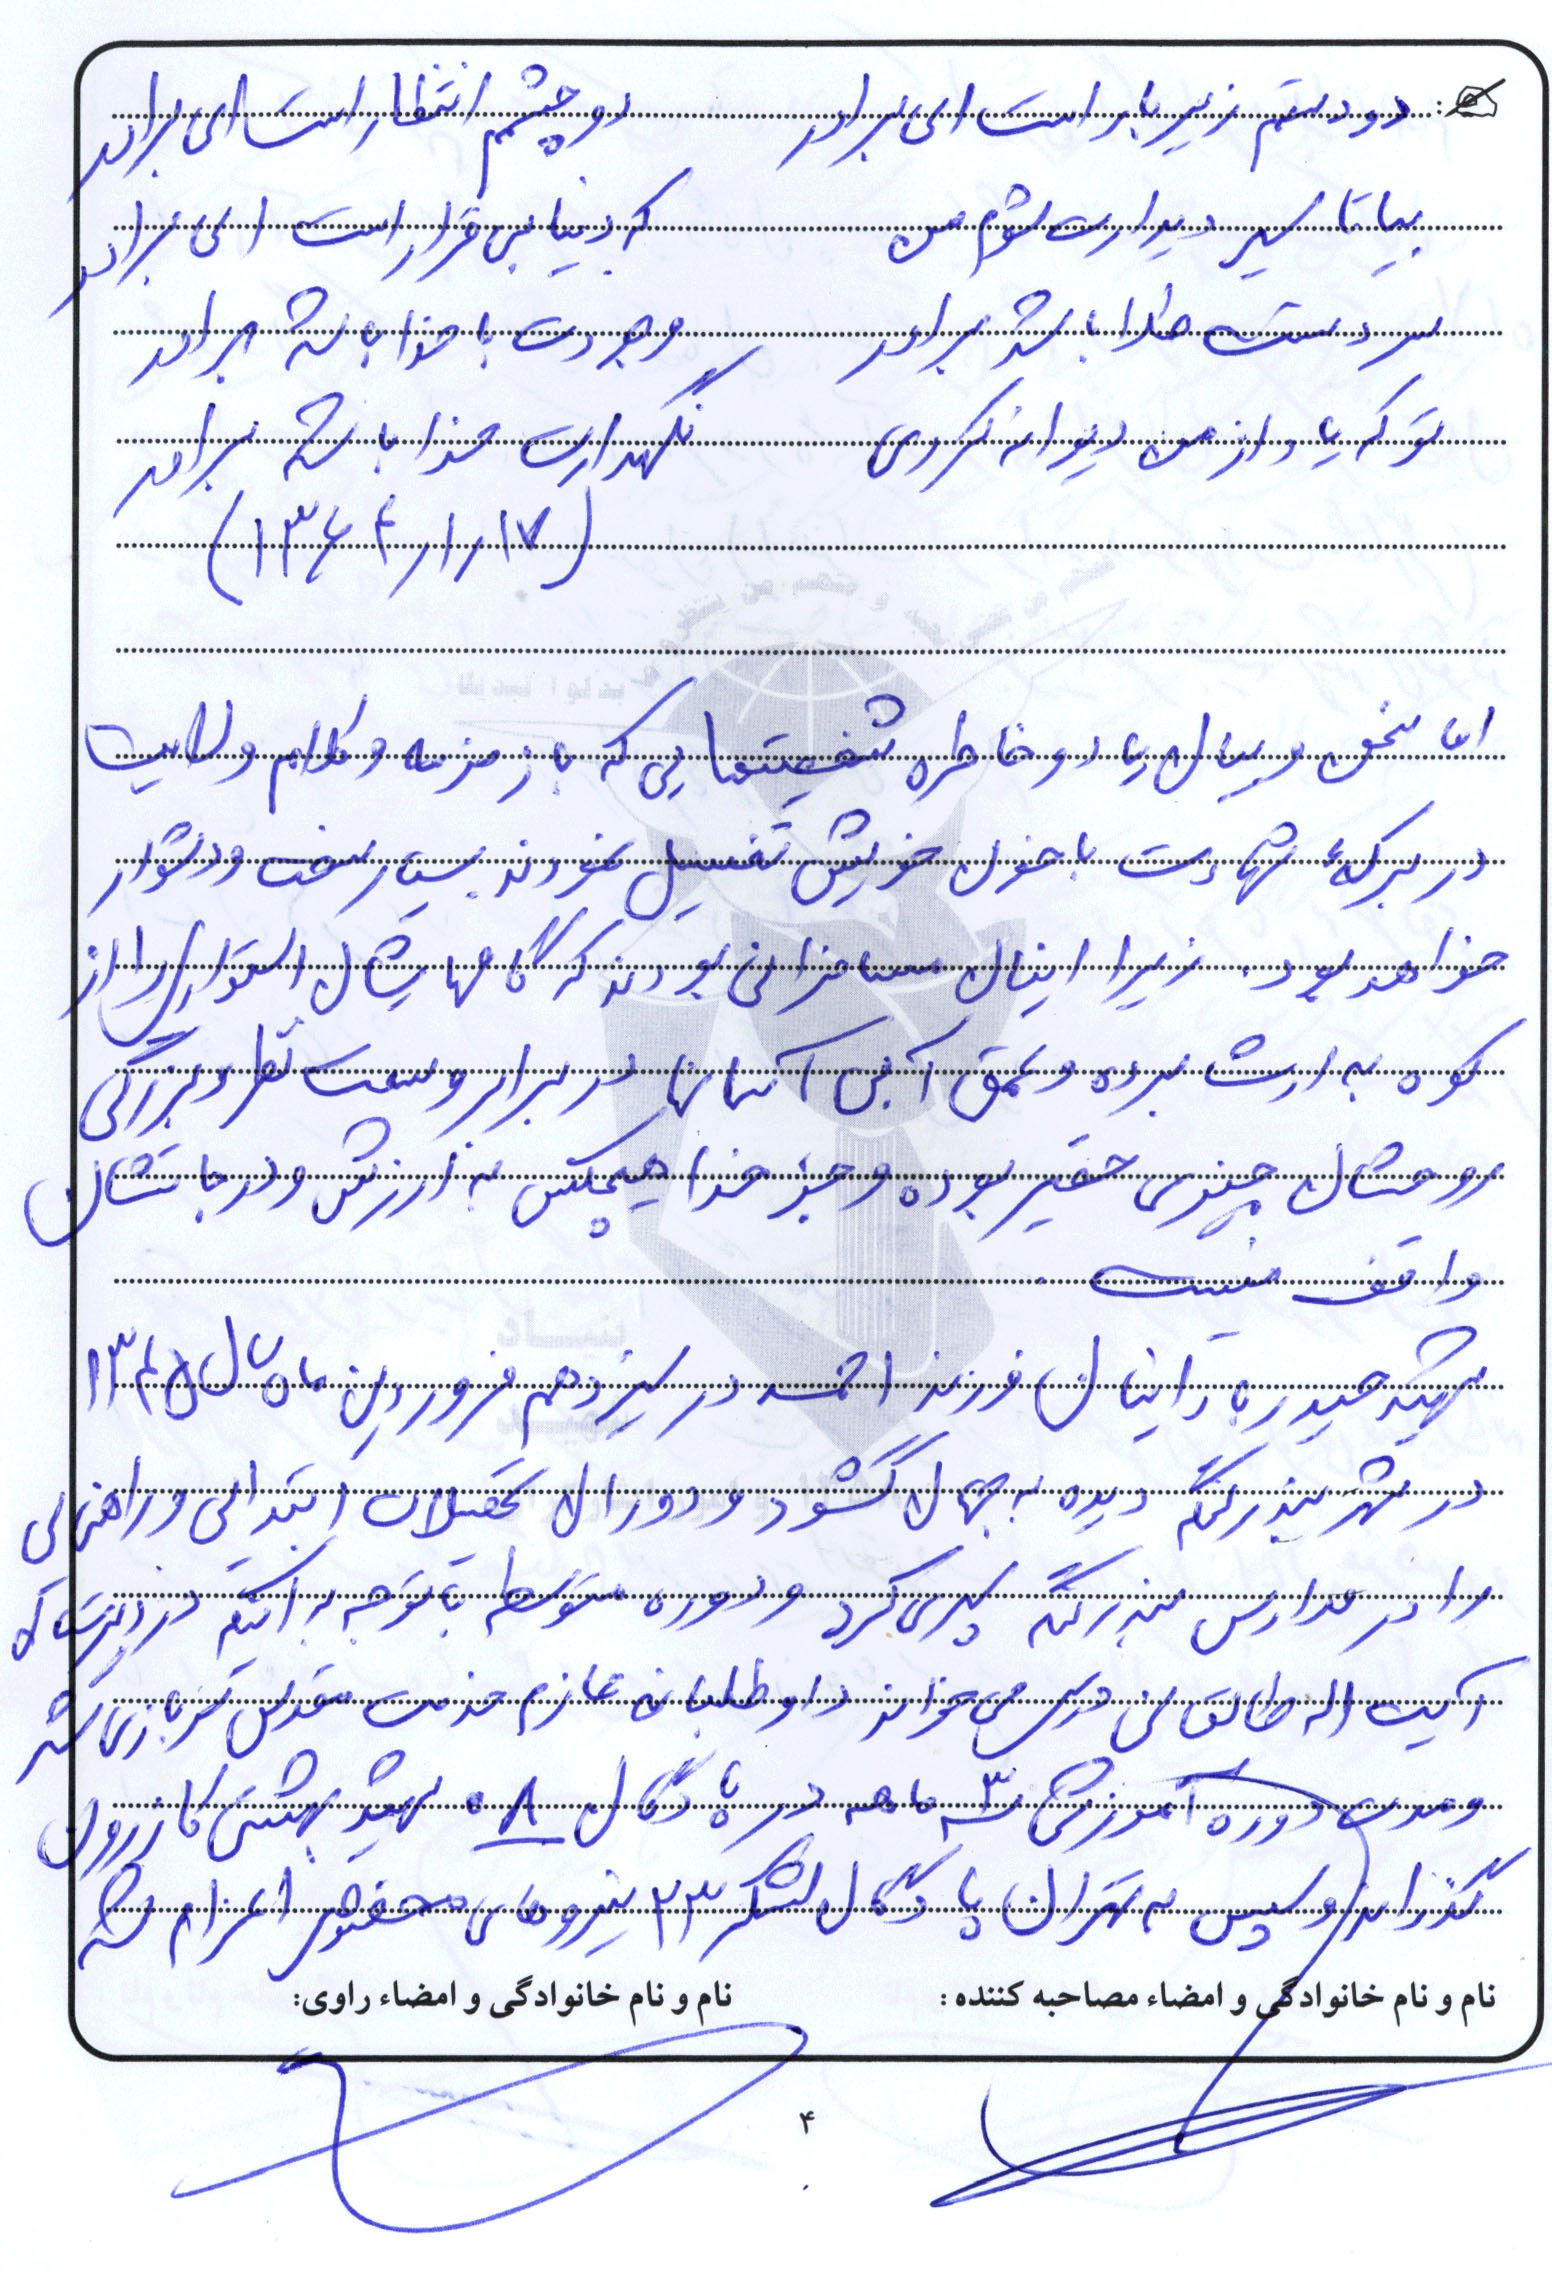 دو دستم زیر بار است ای برادر دو چشم انتظار است ای برادر
بیا تا سیر دیدارت شوم من که دنیا بی قرار است ای برادر
سر دستت طلا باشد برادر وجودت با خدا باشد برادر
تو که یاد از من دیوانه نکردی نگهدارت خدا باشد برادر
(۱۳۶۴/۱/۱۷)
اما سخن و بیان یاد و خاطره شخصیتهایی که با زمزمه و کلام ولایت
در برکهٔ شهادت با خون خویش تغسیل نمودند بسیار سخت و دشوار
خواهد بود. زیرا اینان مسافرانی بودند که گامهایشان استواری را از
کوه به ارث برده و عمق آبی آسمانها در برابر وسعت نظر و بزرگی
روحشان چیزی حقیر بوده و جز خدا هیچکس به ارزش و درجاتشان
واقف نیست.
شهید حیدر پا فرزند احمد در سیزدهم فروردین ماه سال ۱۳۴۵
در شهر بندر گنگه دیده به جهان گشود و دوران تحصیلات ابتدایی و راهنمایی
را در مدارس بندر گنگه سپری کرد و دوره متوسطه با توجه به اینکه در دبیرستان
آیت اله طالقانی درس می خواند داوطلبانه عازم خدمت مقدس سربازی شد
و مدت دوره آموزشی ۳ سه ماهه در پادگان ۰۸ شهید بهشتی کازرون
گذراند و سپس به تهران پادگان لشکر ۲۳ نیروهای مخصوص اعزام شد
نام و نام خانوادگی و امضاء مصاحبه کننده : نام و نام خانوادگی و امضاء راوی:
۴